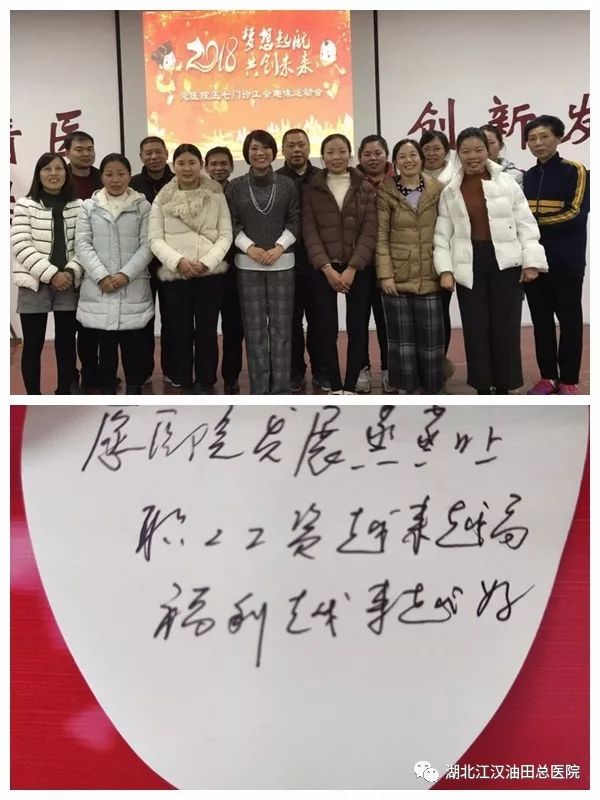 2018 梦想起航
共创未来
总医院五七门诊工会趣味运动会
医
创新发
愿医院发展蒸蒸日上
职工工资越来越高
福利越来越好
湖北江汉油田总医院